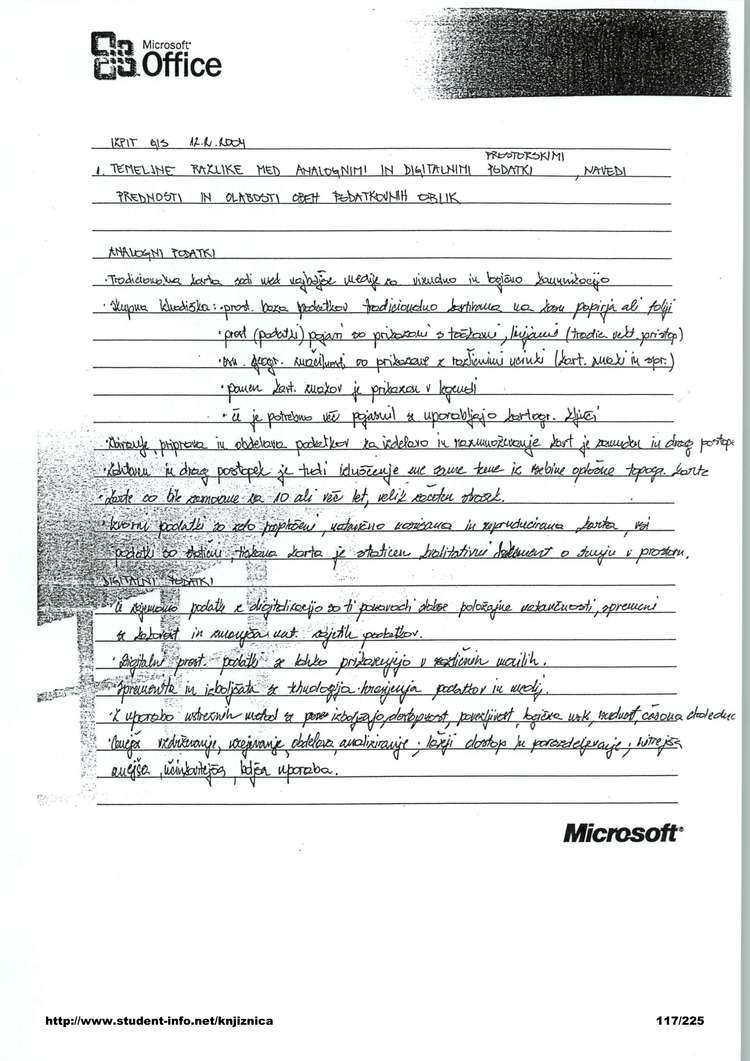 Microsoft
Office
IZPIT GIS 12.2.2004
PROSTORSKIMI
1. TEMELJNE RAZLIKE MED ANALOGNIMI IN DIGITALNIMI PODATKI, NAVEDI
PREDNOSTI IN SLABOSTI OBEH PODATKOVNIH OBLIK
ANALOGNI PODATKI
· Tradicionalna karta sodi med najboljše medije za vizualno in logično komunikacijo
· Skupna : · prost. baza podatkov tradicionalno kartirana na kosu papirja ali foliji
· prost (podatki) pojavi so prikazani s točkami, linijami (tradic. vekt. pristop)
· geogr. značilnosti so prikazane z različnimi (kart. znaki in spr.)
· pomen kart. znakov je prikazan v legendi
· če je potrebno več pojasnil se uporabljajo kartogr. ključi
· Zbiranje, priprava in obdelava podatkov za izdelavo in razmnoževanje kart je zamuden in drag postopek
· Zahteven in drag postopek je tudi izluščenje ene same teme iz vsebine splošne topogr. karte
· Karte so bile za 10 ali več let, velik začeten strošek.
· Izvorni podatki so zelo , natančno narisana in reproducirana karta, vsi
podatki so statični, tiskana karta je statičen kvalitativni dokument o stanju v prostoru.
DIGITALNI PODATKI
· Če zajemamo podatke z digitalizacijo so ti ponavadi slabše položajne natančnosti, spremeni
se kakovost in zmanjša nat. zajetih podatkov.
· Digitalni prost. podatki se lahko prikazujejo v različnih merilih.
· Spremenita in izboljšata se tehnologija hranjenja podatkov in medij.
· Z uporabo ustreznih metod se izboljšajo dostopnost, popolnost, logična usk., časovna
· Cenejše vzdrževanje, urejevanje, obdelava, analiziranje; lažji dostop in porazdeljevanje; hitrejša
cenejša, učinkovitejša, boljša uporaba.
Microsoft
http://www.student-info.net/knjiznica
117/225